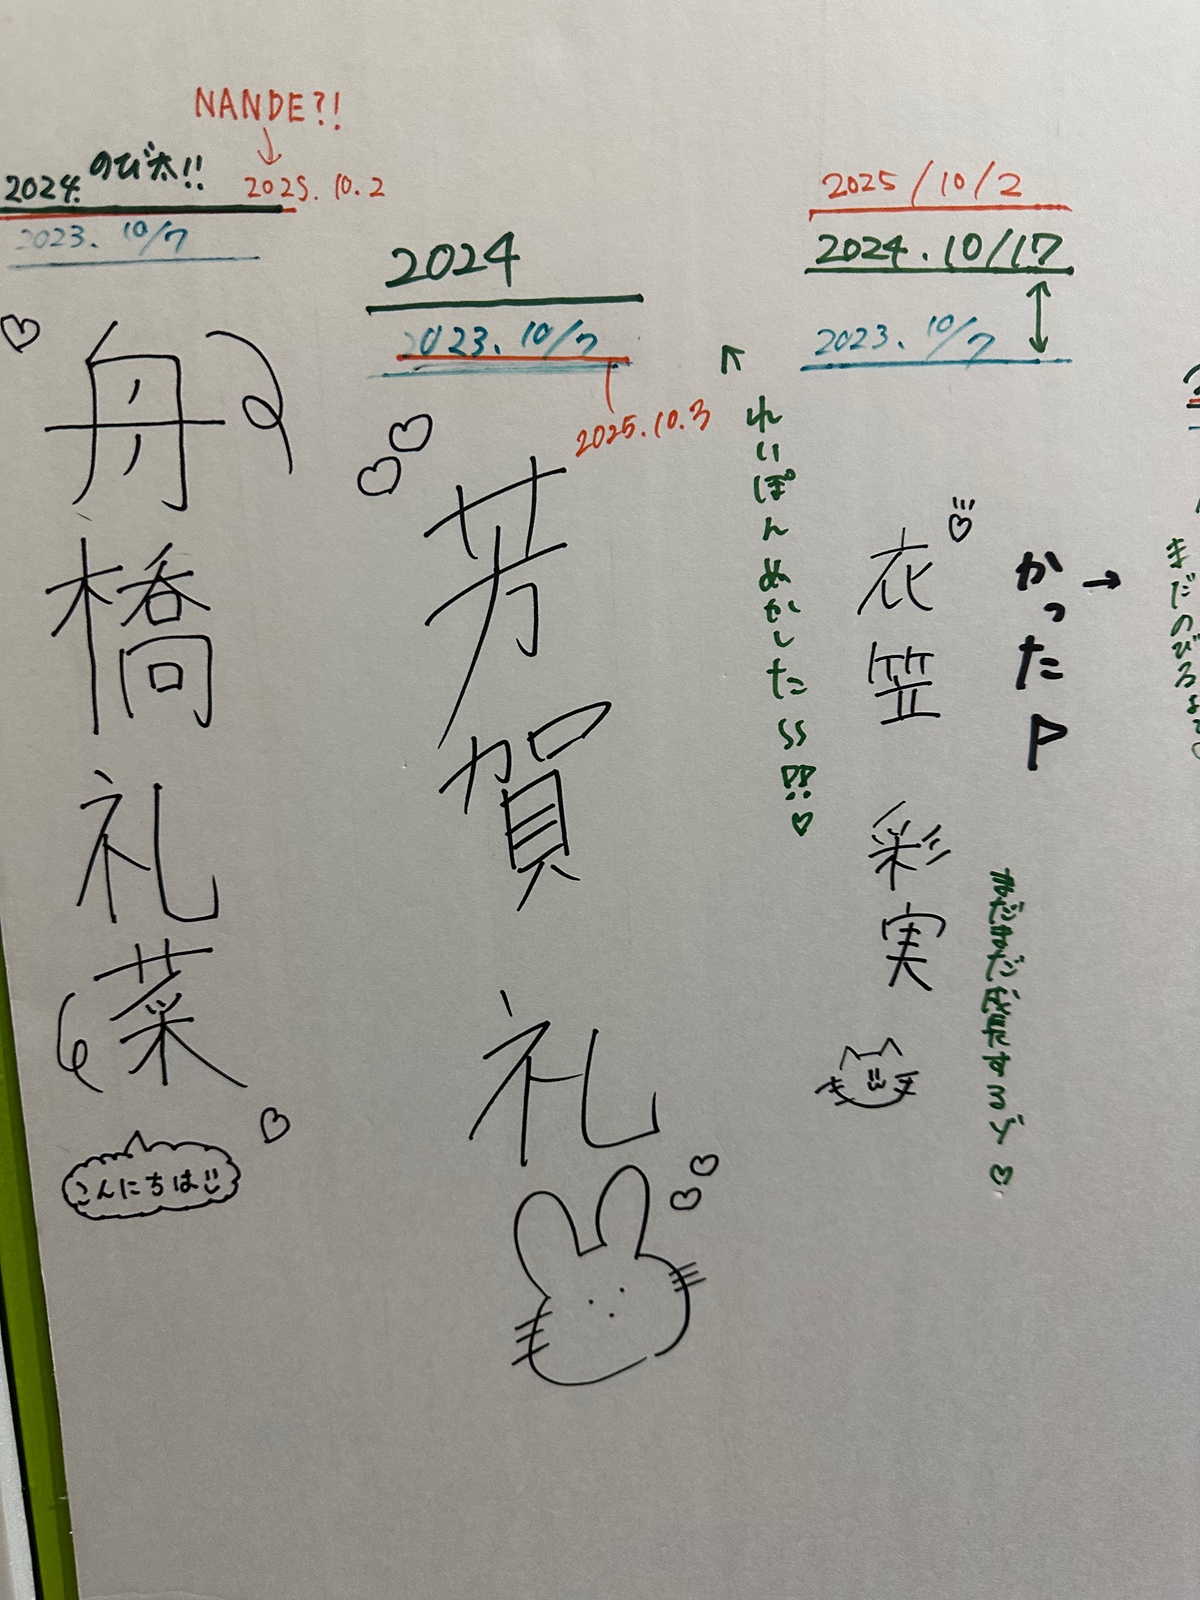 NANDE?!
2024. のび太!!
2025.10.2
2023. 10/7
舟橋 礼菜
こんにちは
2024
2023. 10/7
2025.10.3
芳賀 礼
れいぽんぬかした
2025/10/2
2024.10/17
2023. 10/7
衣笠 彩実
かったP
まだまだ成長するゾ
まだのびるよ